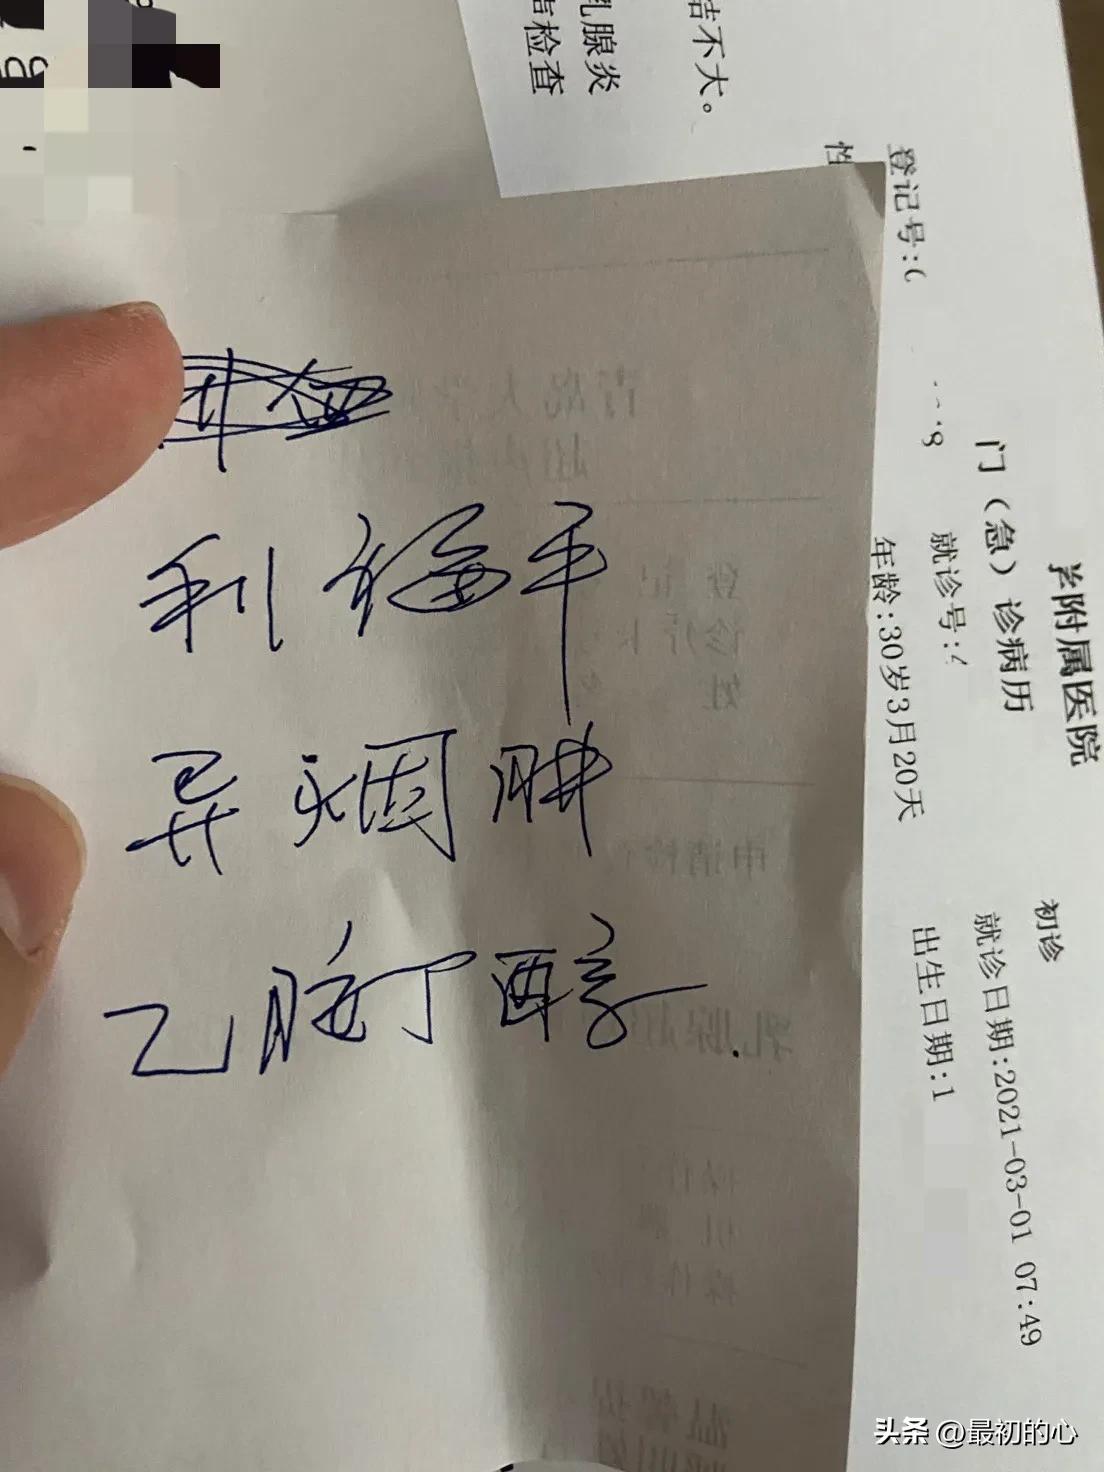 利福平
异烟肼
乙胺丁醇
结不大。
乳腺炎
检查
学附属医院
门（急）诊病历
初诊
登记号:
就诊号:
就诊日期:2021-03-01 07:49
性
年龄:30岁3月20天
出生日期:1
头条 @最初的心